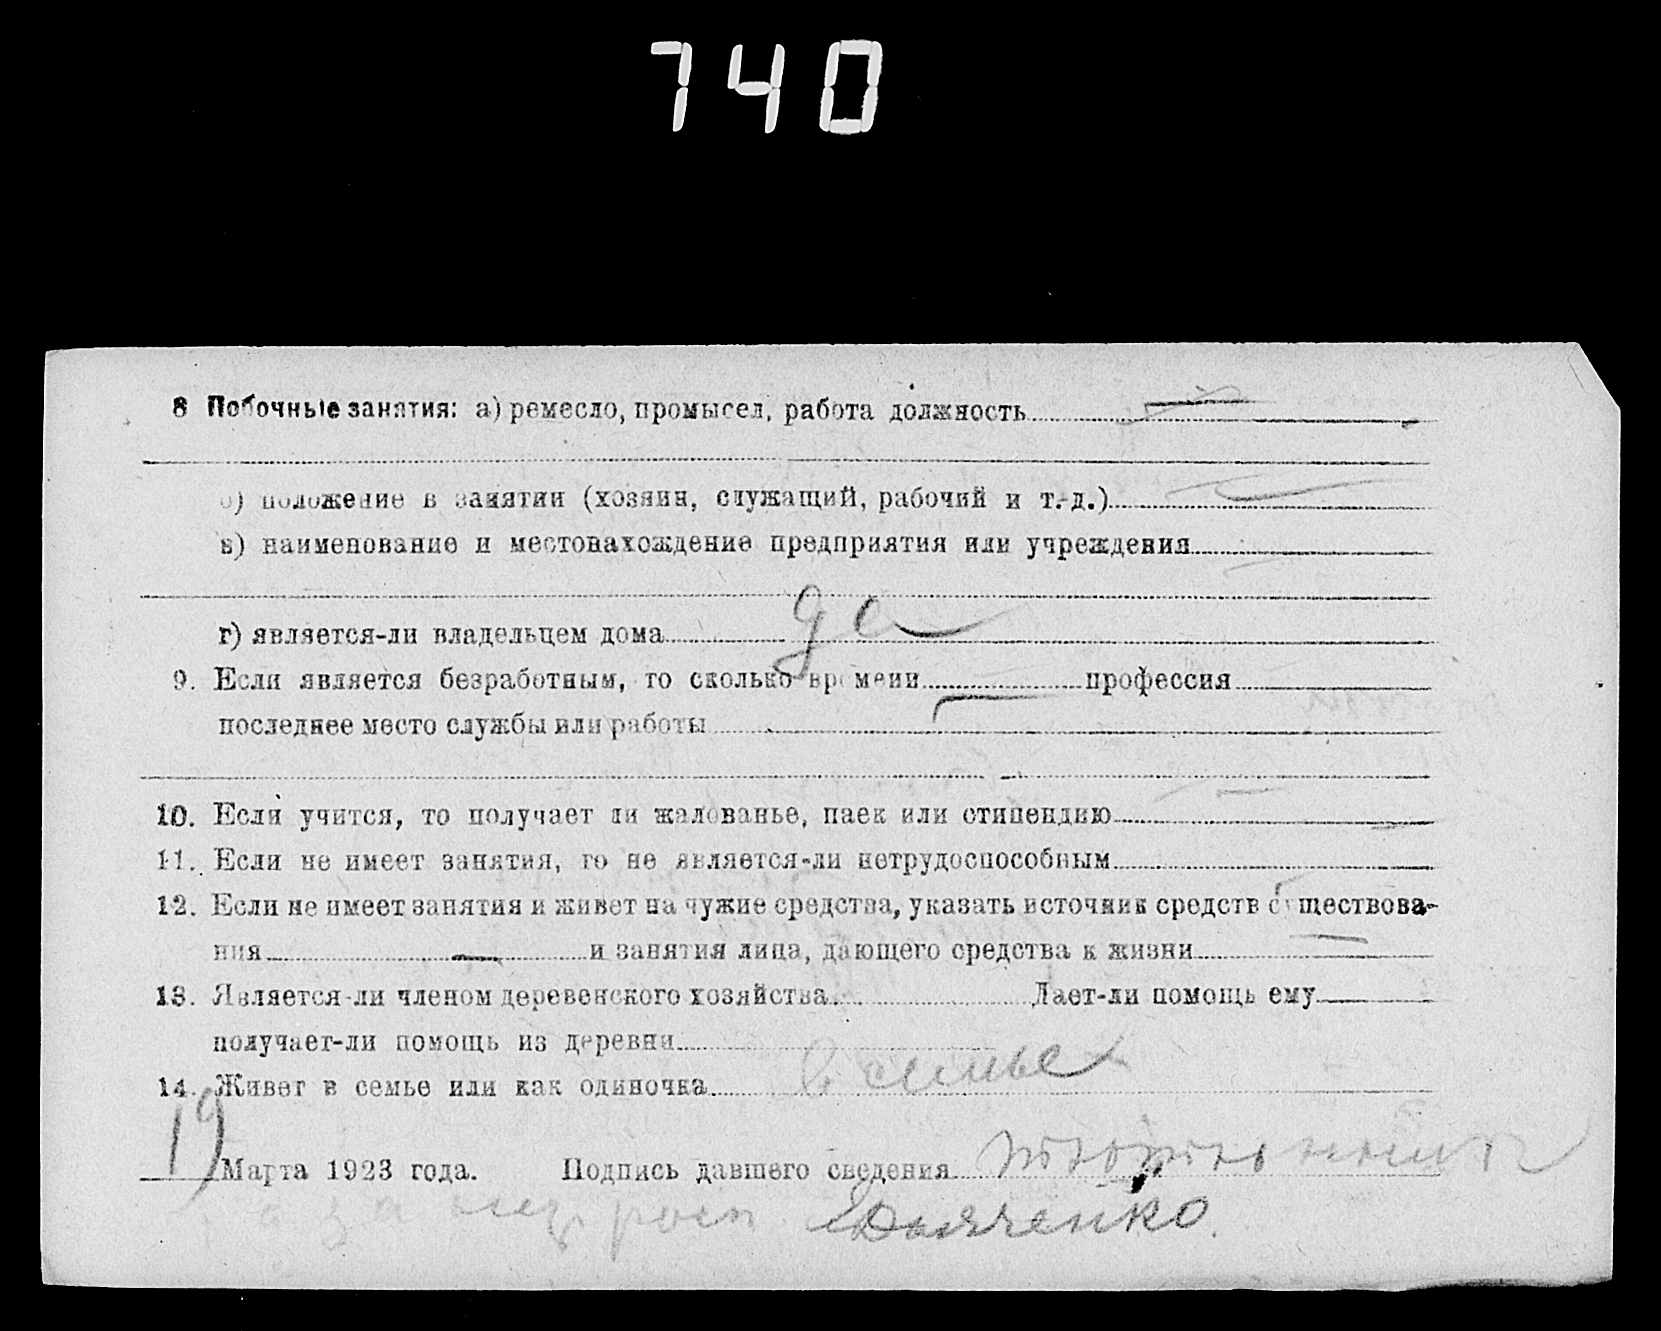 740
8 Побочные занятия: а) ремесло, промысел, работа должность
б) положение в занятии (хозяин, служащий, рабочий и т.-д.)
в) наименование и местонахождение предприятия или учреждения
г) является-ли владельцем дома да
9. Если является безработным, то сколько времени профессия
последнее место службы или работы
10. Если учится, то получает ли жалованье, паек или стипендию
11. Если не имеет занятия, то не является-ли нетрудоспособным
12. Если не имеет занятия и живет на чужие средства, указать источник средств существова-
ния — и занятия лица, дающего средства к жизни
13. Является-ли членом деревенского хозяйства Дает-ли помощь ему
получает-ли помощь из деревни
14. Живет в семье или как одиночка в семье
19 Марта 1923 года. Подпись давшего сведения
а за нез росп Дьяченко